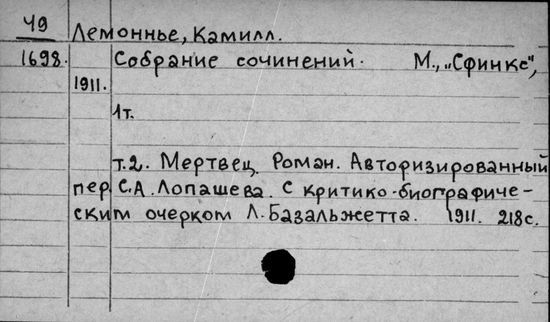 49
Лемоннье, Камилл.
1698. Собрание сочинений. М., „Сфинкс",
1911.
1т.
т.2. Мертвец. Роман. Авторизированный
пер. С.А. Лопашева. С критико-биографиче-
ским очерком Л. Базальжетта. 1911. 218с.